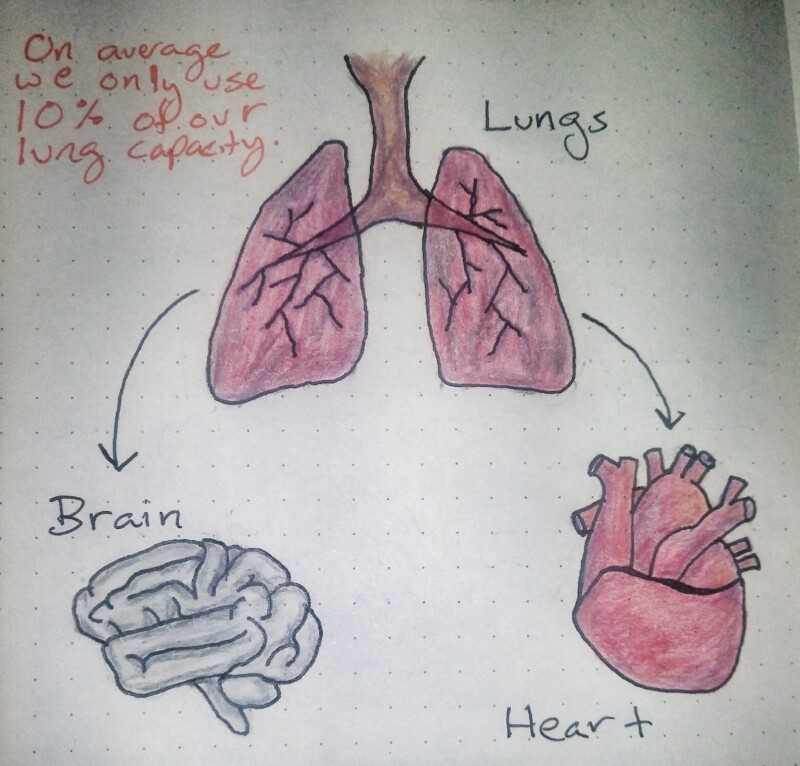 On average
we only use
10% of our
lung capacity.
Lungs
Brain
Heart